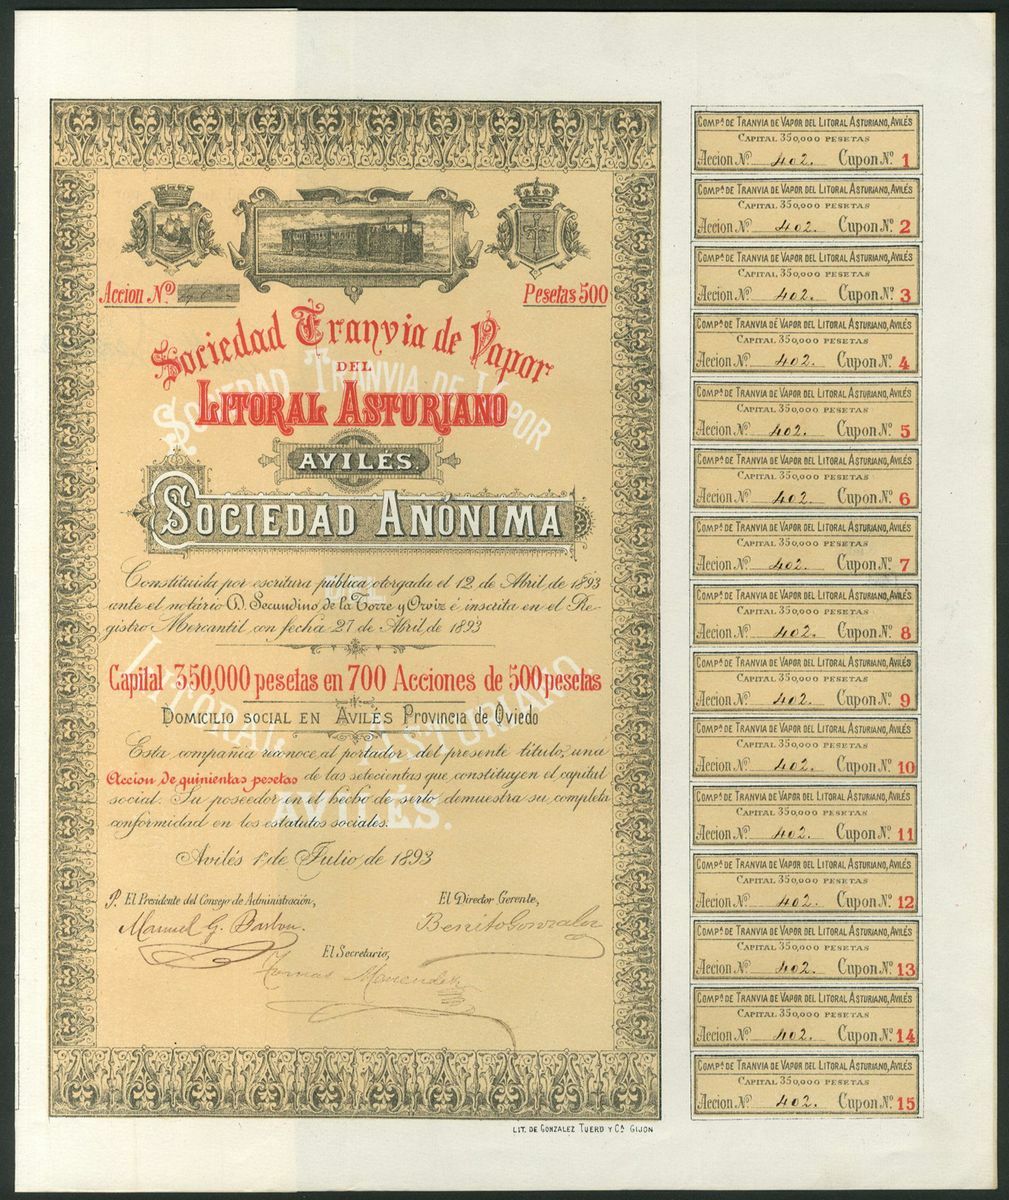 Accion Nº
Pesetas 500
Sociedad Tranvia de Vapor
DEL
LITORAL ASTURIANO
AVILÉS
SOCIEDAD ANÓNIMA
Constituida por escritura pública otorgada el 12 de Abril de 1893
ante el notário D. Secundino de la Torre y Orviz é inscrita en el Re-
gistro Mercantil con fecha 27 de Abril de 1893
Capital 350,000 pesetas en 700 Acciones de 500 pesetas
DOMICILIO SOCIAL EN AVILÉS PROVINCIA DE OVIEDO
Esta compañia reconoce al portador del presente titulo, una
Accion de quinientas pesetas de las setecientas que constituyen el capital
social. Su poseedor en el hecho de serlo demuestra su completa
conformidad en los estatutos sociales.
Avilés 1º de Julio de 1893
P. El Presidente del Consejo de Administración,
El Director Gerente,
Manuel G. Barbon.
Benito Gonzalez
El Secretario,
Tomas Menendez
LIT. DE GONZALEZ TUERO Y Cª GIJON
SOCIEDAD TRANVIA DE VAPOR
DEL
LITORAL ASTURIANO.
AVILÉS.
COMPª DE TRANVIA DE VAPOR DEL LITORAL ASTURIANO, AVILÉS
CAPITAL 350,000 PESETAS
Accion Nº 402. Cupon Nº 1
COMPª DE TRANVIA DE VAPOR DEL LITORAL ASTURIANO, AVILÉS
CAPITAL 350,000 PESETAS
Accion Nº 402. Cupon Nº 2
COMPª DE TRANVIA DE VAPOR DEL LITORAL ASTURIANO, AVILÉS
CAPITAL 350,000 PESETAS
Accion Nº 402. Cupon Nº 3
COMPª DE TRANVIA DE VAPOR DEL LITORAL ASTURIANO, AVILÉS
CAPITAL 350,000 PESETAS
Accion Nº 402. Cupon Nº 4
COMPª DE TRANVIA DE VAPOR DEL LITORAL ASTURIANO, AVILÉS
CAPITAL 350,000 PESETAS
Accion Nº 402. Cupon Nº 5
COMPª DE TRANVIA DE VAPOR DEL LITORAL ASTURIANO, AVILÉS
CAPITAL 350,000 PESETAS
Accion Nº 402. Cupon Nº 6
COMPª DE TRANVIA DE VAPOR DEL LITORAL ASTURIANO, AVILÉS
CAPITAL 350,000 PESETAS
Accion Nº 402. Cupon Nº 7
COMPª DE TRANVIA DE VAPOR DEL LITORAL ASTURIANO, AVILÉS
CAPITAL 350,000 PESETAS
Accion Nº 402. Cupon Nº 8
COMPª DE TRANVIA DE VAPOR DEL LITORAL ASTURIANO, AVILÉS
CAPITAL 350,000 PESETAS
Accion Nº 402. Cupon Nº 9
COMPª DE TRANVIA DE VAPOR DEL LITORAL ASTURIANO, AVILÉS
CAPITAL 350,000 PESETAS
Accion Nº 402. Cupon Nº 10
COMPª DE TRANVIA DE VAPOR DEL LITORAL ASTURIANO, AVILÉS
CAPITAL 350,000 PESETAS
Accion Nº 402. Cupon Nº 11
COMPª DE TRANVIA DE VAPOR DEL LITORAL ASTURIANO, AVILÉS
CAPITAL 350,000 PESETAS
Accion Nº 402. Cupon Nº 12
COMPª DE TRANVIA DE VAPOR DEL LITORAL ASTURIANO, AVILÉS
CAPITAL 350,000 PESETAS
Accion Nº 402. Cupon Nº 13
COMPª DE TRANVIA DE VAPOR DEL LITORAL ASTURIANO, AVILÉS
CAPITAL 350,000 PESETAS
Accion Nº 402. Cupon Nº 14
COMPª DE TRANVIA DE VAPOR DEL LITORAL ASTURIANO, AVILÉS
CAPITAL 350,000 PESETAS
Accion Nº 402. Cupon Nº 15